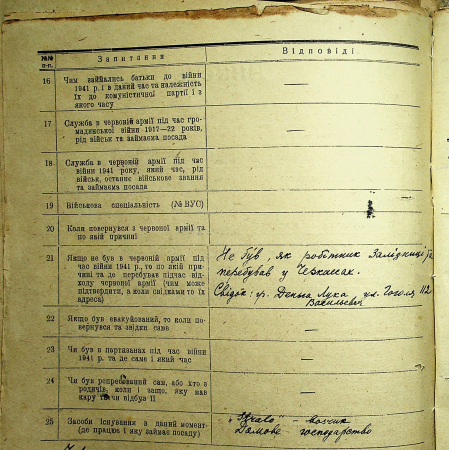 №№ п-п.
Запитання
Відповіді
16
Чим займались батьки до війни
1941 р. і в даний час та належність
їх до комуністичної партії і з
якого часу
—
17
Служба в червоній армії під час гро-
мадянської війни 1917—22 років,
рід військ та займаєма посада
—
18
Служба в червоній армії під час
війни 1941 року, який час, рід
військ, останнє військове звання
та займаєма посада
—
19
Військова спеціальність (№ ВУС)
20
Коли повернувся з червоної армії та
по якій причині
—
21
Якщо не був в червоній армії під
час війни 1941 р., то по якій при-
чині та де перебував під час від-
ходу червоної армії (чим може
підтвердити, а коли свідками то їх
адреса)
Не був, як робітник залізниці
перебував у Черкасах.
Свідок: гр. Лука вул. Гоголя 112
Васильевич
22
Якщо був евакуйований, то коли по-
вернувся та звідки саме
—
23
Чи був в партизанах під час війни
1941 р. та де саме і який час
—
24
Чи був репресований сам, або хто з
родичів, коли і защо, яку мав
кару та чи відбув її
—
25
Засоби існування в даний момент
(де працює і яку займає посаду)
возчик
Домове господарство